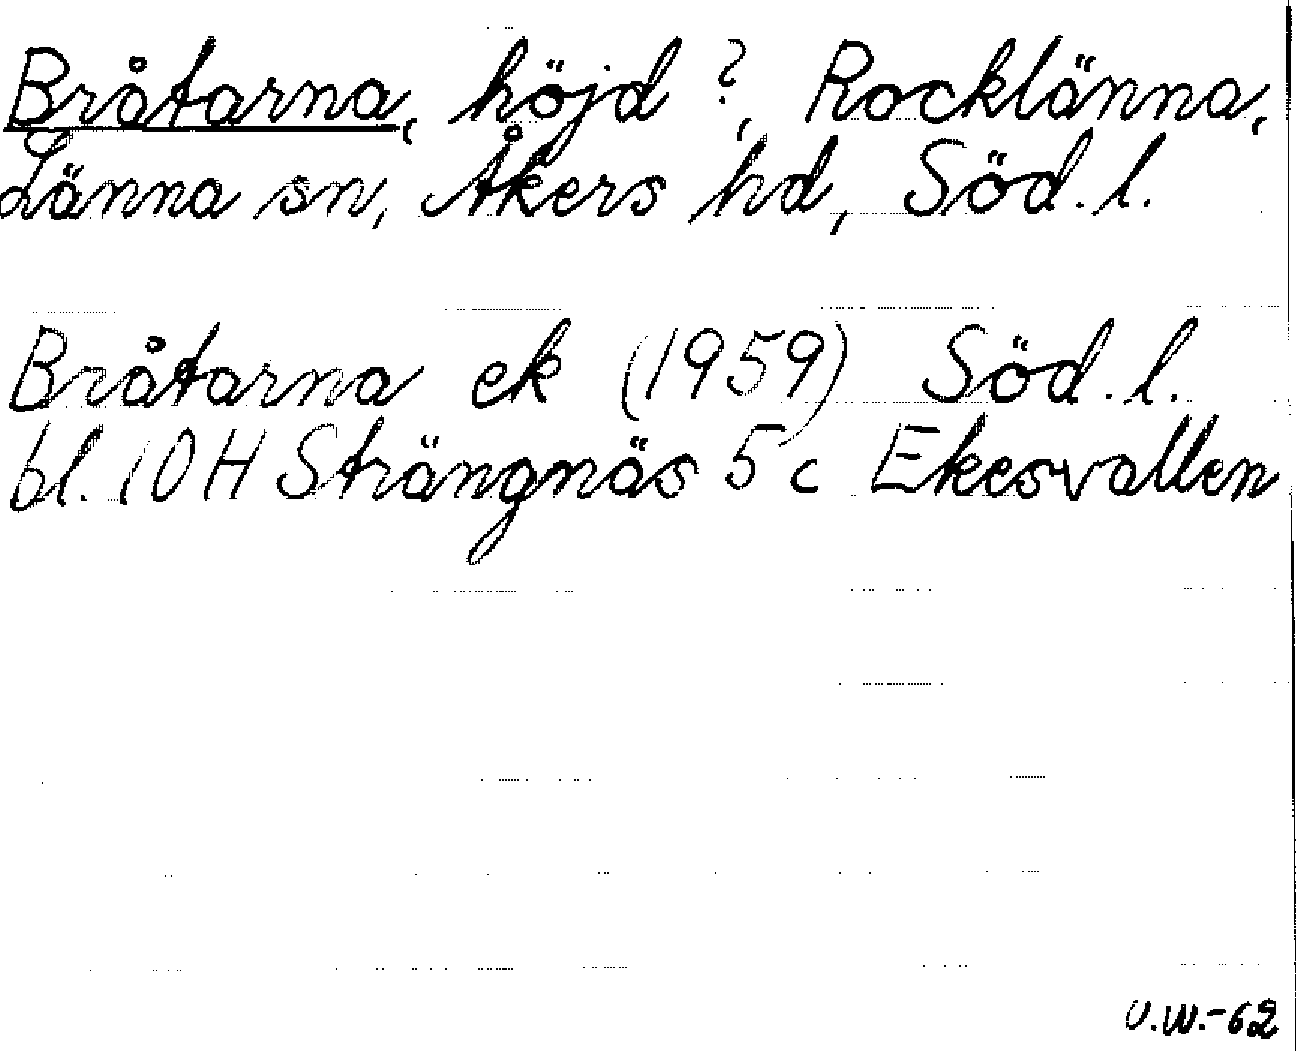 Bråtarna, höjd ?, Rocklänna,
Länna sn, Åkers hd, Söd. l.
Bråtarna ek (1959) Söd. l.
bl. 10H Strängnäs 5c Ekesvallen
U.W.-62